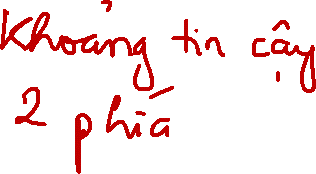 Khoảng tin cậy
2 phía